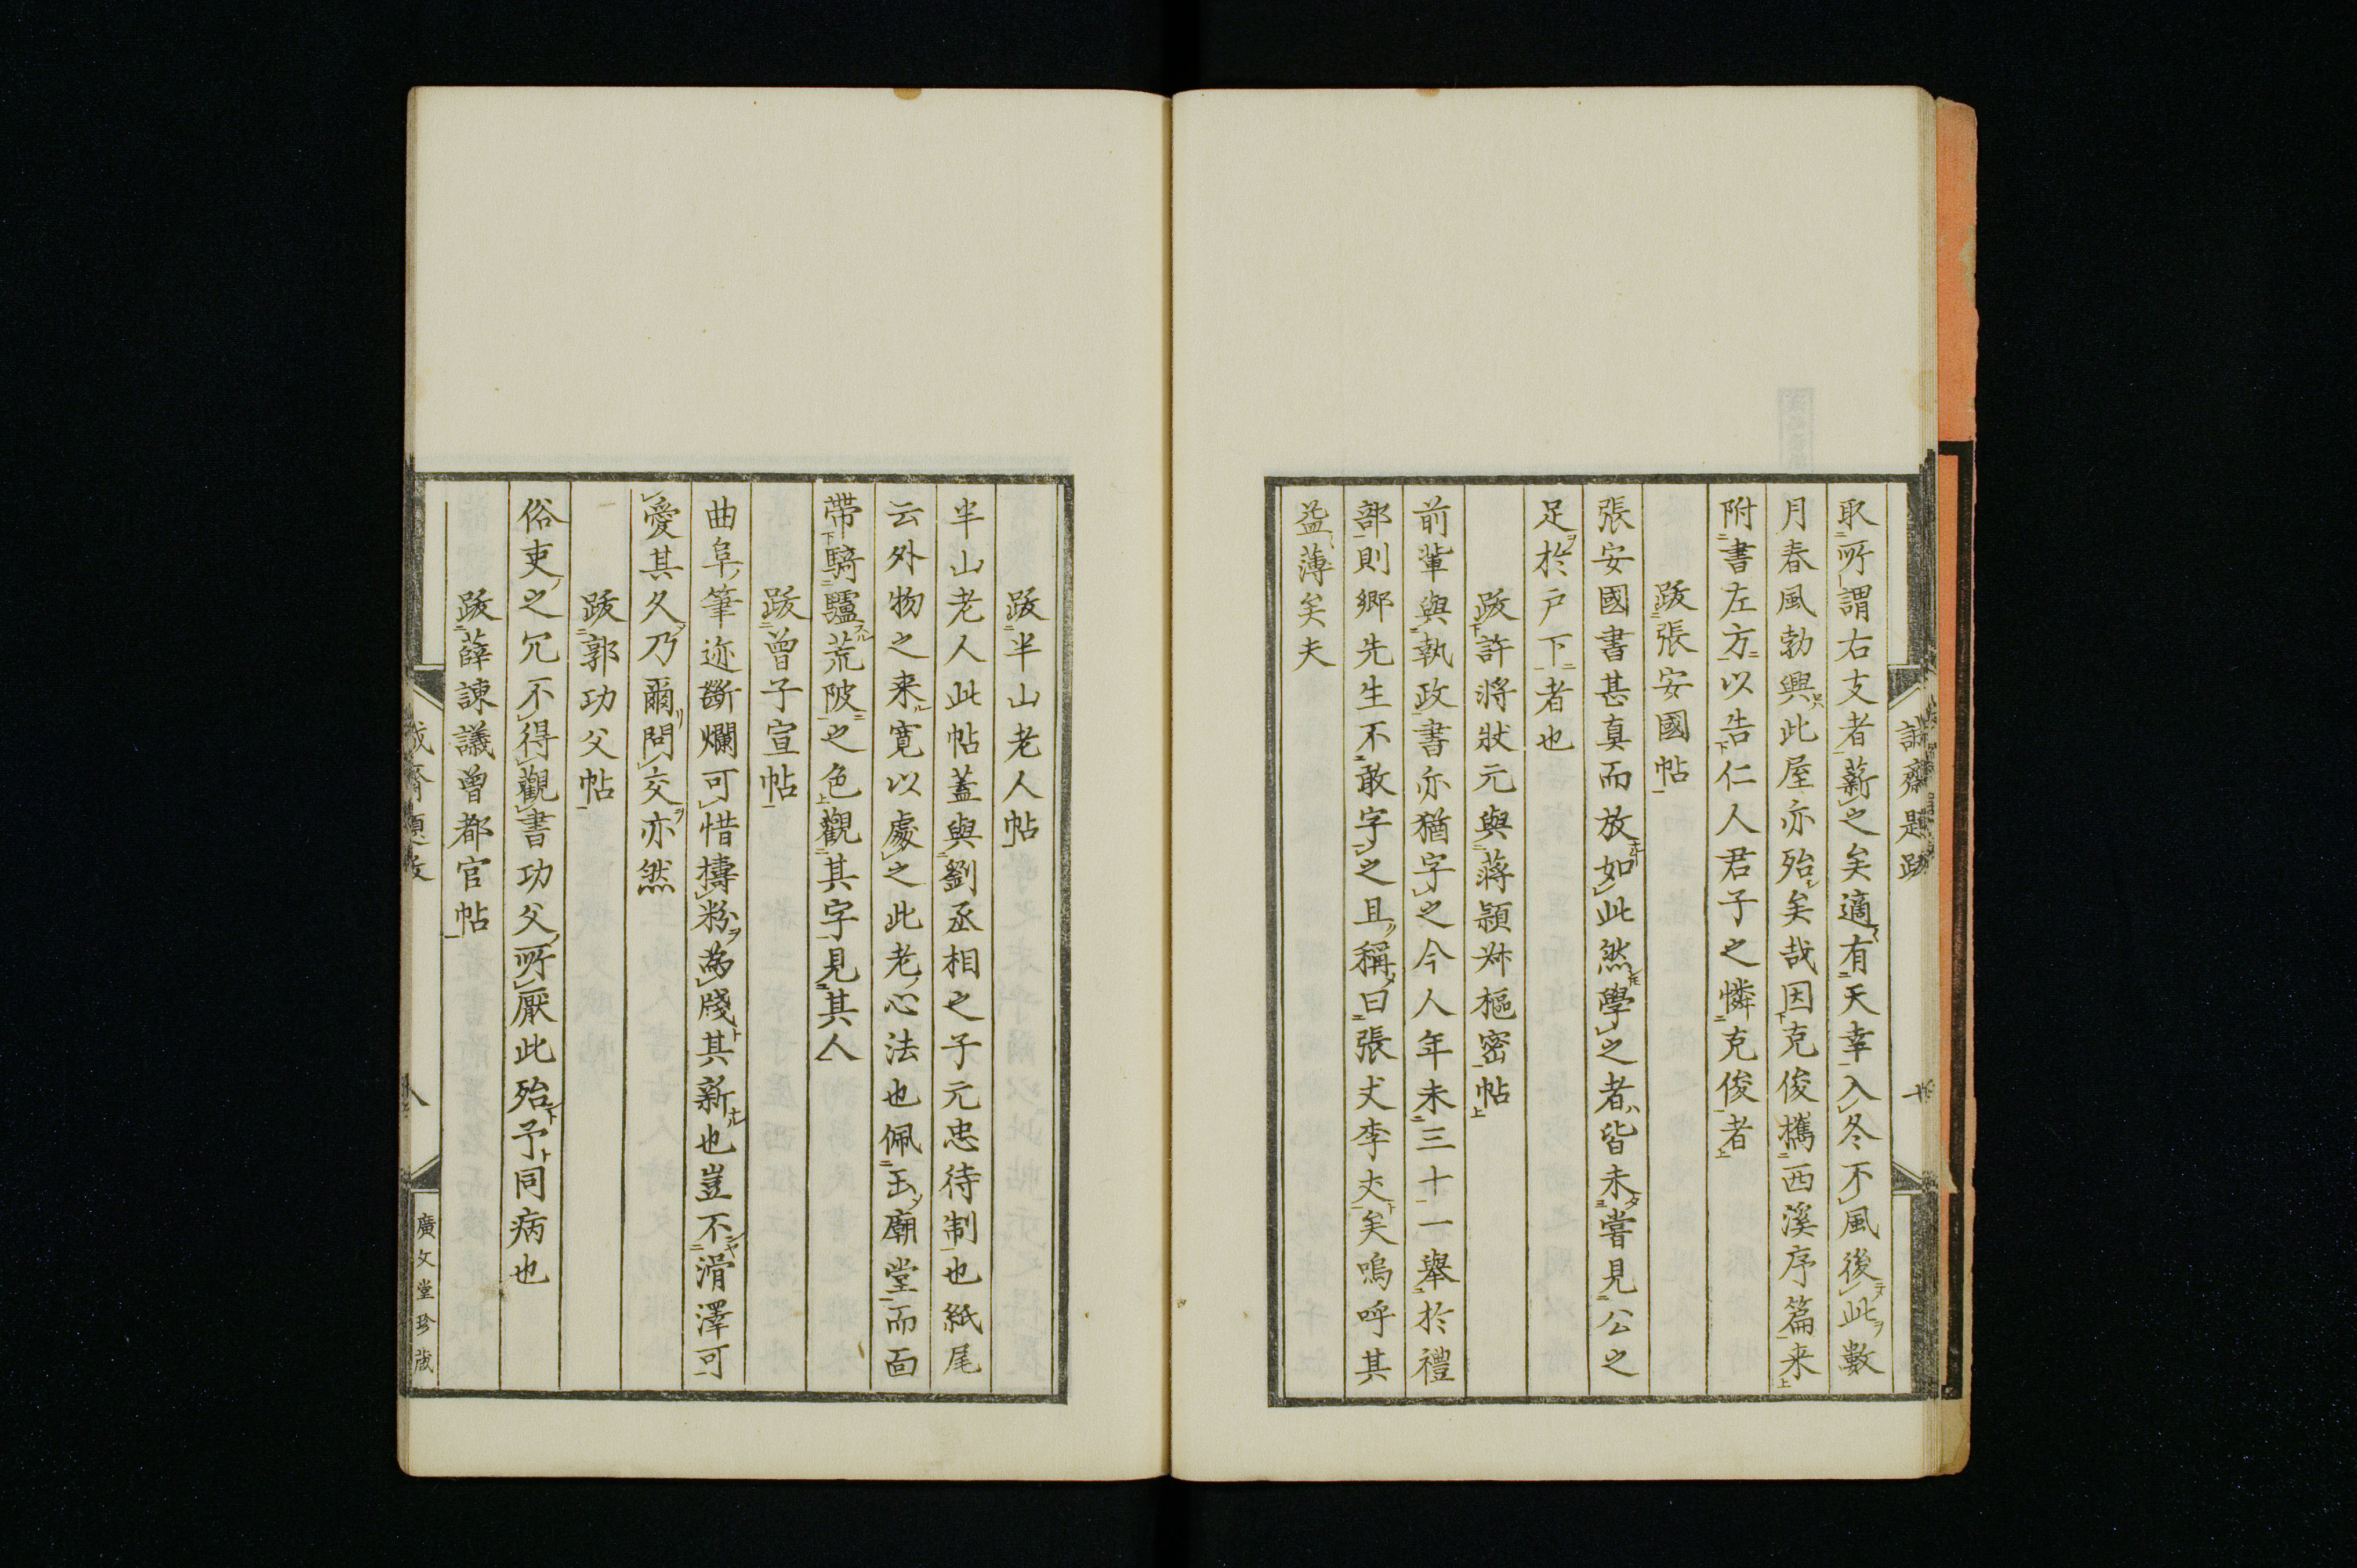 誠齋題跋
取所謂右支者薪之矣適有天幸入冬不風後此數
月春風勃興此屋亦殆矣哉因克俊攜西溪序篇来
附書左方以告仁人君子之憐克俊者
跋張安國帖
張安國書甚真而放如此然學之者皆未嘗見公之
足於戸下者也
跋許將狀元與蔣頴叔樞密帖
前輩與執政書亦猶字之今人年未三十一舉於禮
部則郷先生不敢字之且稱曰張丈李丈矣嗚呼其
益薄矣夫
跋半山老人帖
半山老人此帖蓋與劉丞相之子元忠待制也紙尾
云外物之来寛以處之此老心法也佩玉廟堂而面
帶騎驢荒陂之色觀其字見其人
跋曾子宣帖
曲阜筆迹斷爛可惜擣粉為牋其新也豈不滑澤可
愛其久乃爾問交亦然
跋郭功父帖
俗吏之冗不得觀書功父所厭此殆予同病也
跋薛諫議曾都官帖
八
廣文堂珍蔵